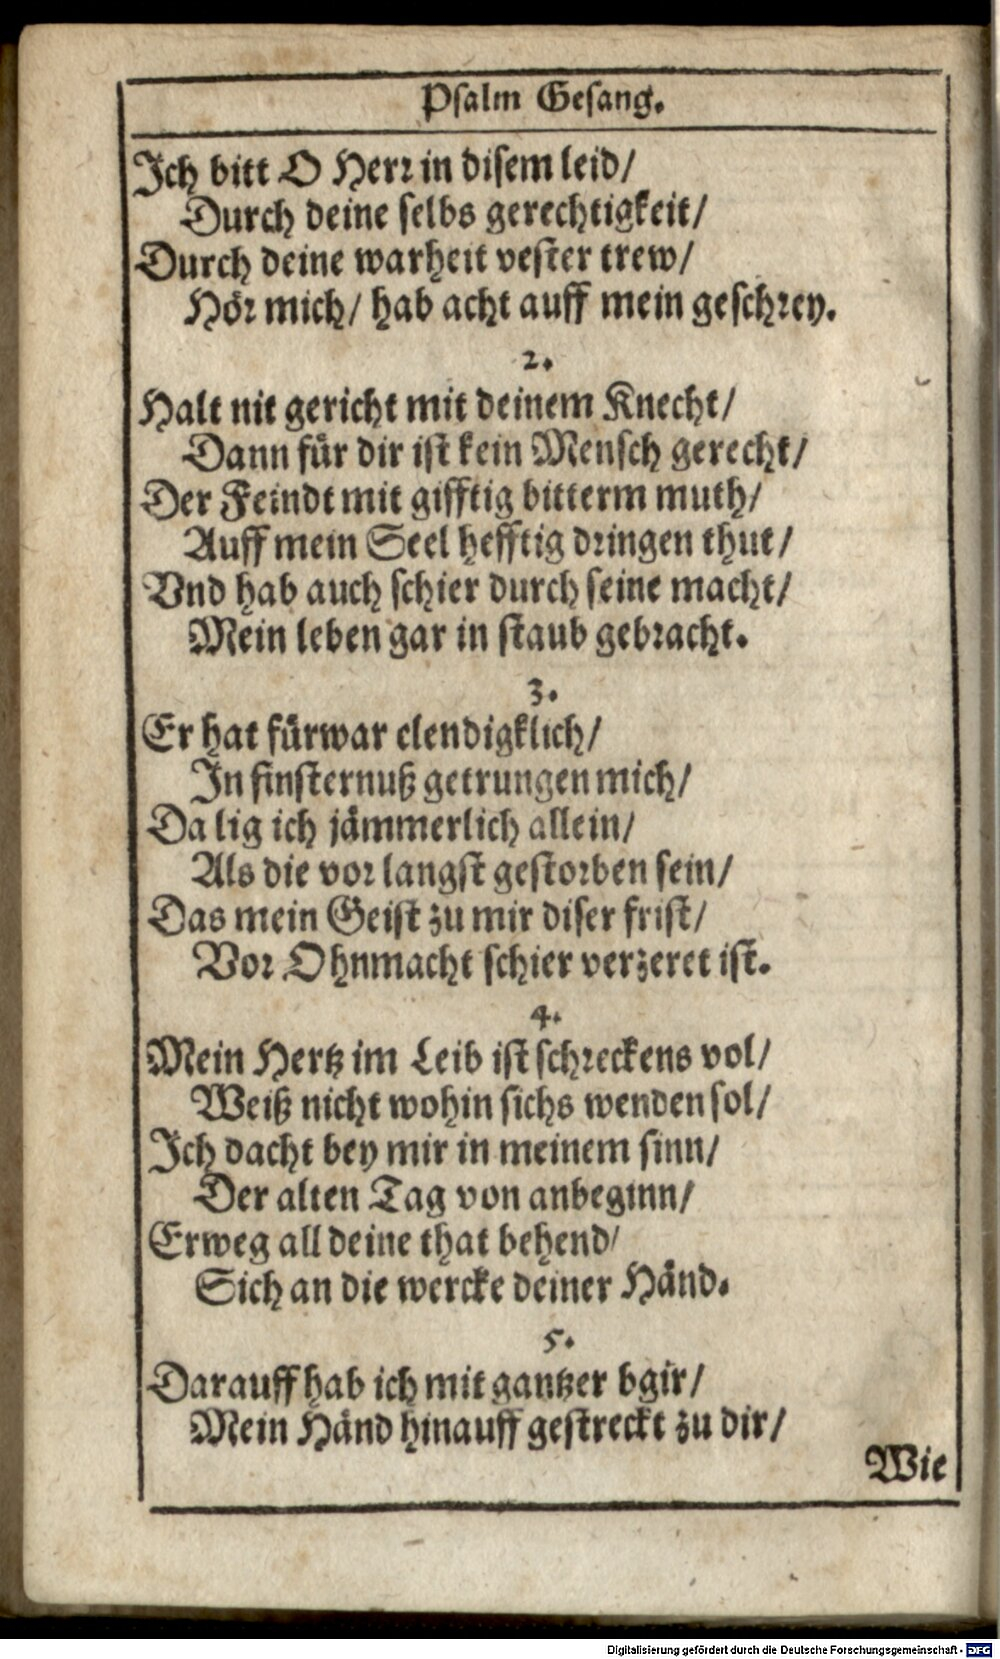 Psalm Gesang.
Ich bitt O Herr in disem leid/
Durch deine selbs gerechtigkeit/
Durch deine warheit vester trew/
Hör mich/ hab acht auff mein geschrey.
2.
Halt nit gericht mit deinem Knecht/
Dann für dir ist kein Mensch gerecht/
Der Feindt mit gifftig bitterm muth/
Auff mein Seel hefftig dringen thut/
Vnd hab auch schier durch seine macht/
Mein leben gar in staub gebracht.
3.
Er hat fürwar elendigklich/
In finsternuß getrungen mich/
Da lig ich jämmerlich allein/
Als die vor langst gestorben sein/
Das mein Geist zu mir diser frist/
Vor Ohnmacht schier verzeret ist.
4.
Mein Hertz im Leib ist schreckens vol/
Weiß nicht wohin sichs wenden sol/
Ich dacht bey mir in meinem sinn/
Der alten Tag von anbeginn/
Erweg all deine that behend/
Sich an die wercke deiner Händ.
5.
Darauff hab ich mit gantzer bgir/
Mein Händ hinauff gestreckt zu dir/
Wie
Digitalisierung gefördert durch die Deutsche Forschungsgemeinschaft - DFG